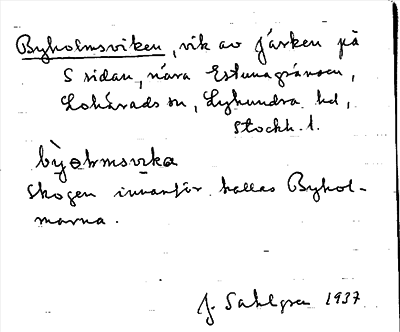 Byholmsviken, vik av Järken på
S sidan, nära Estunagränsen,
Lohärads sn, Lyhundra hd,
Stockh. l.
bỳɵlmsvika
Skogen innanför kallas Byhol-
marna.
J. Sahlgren 1937